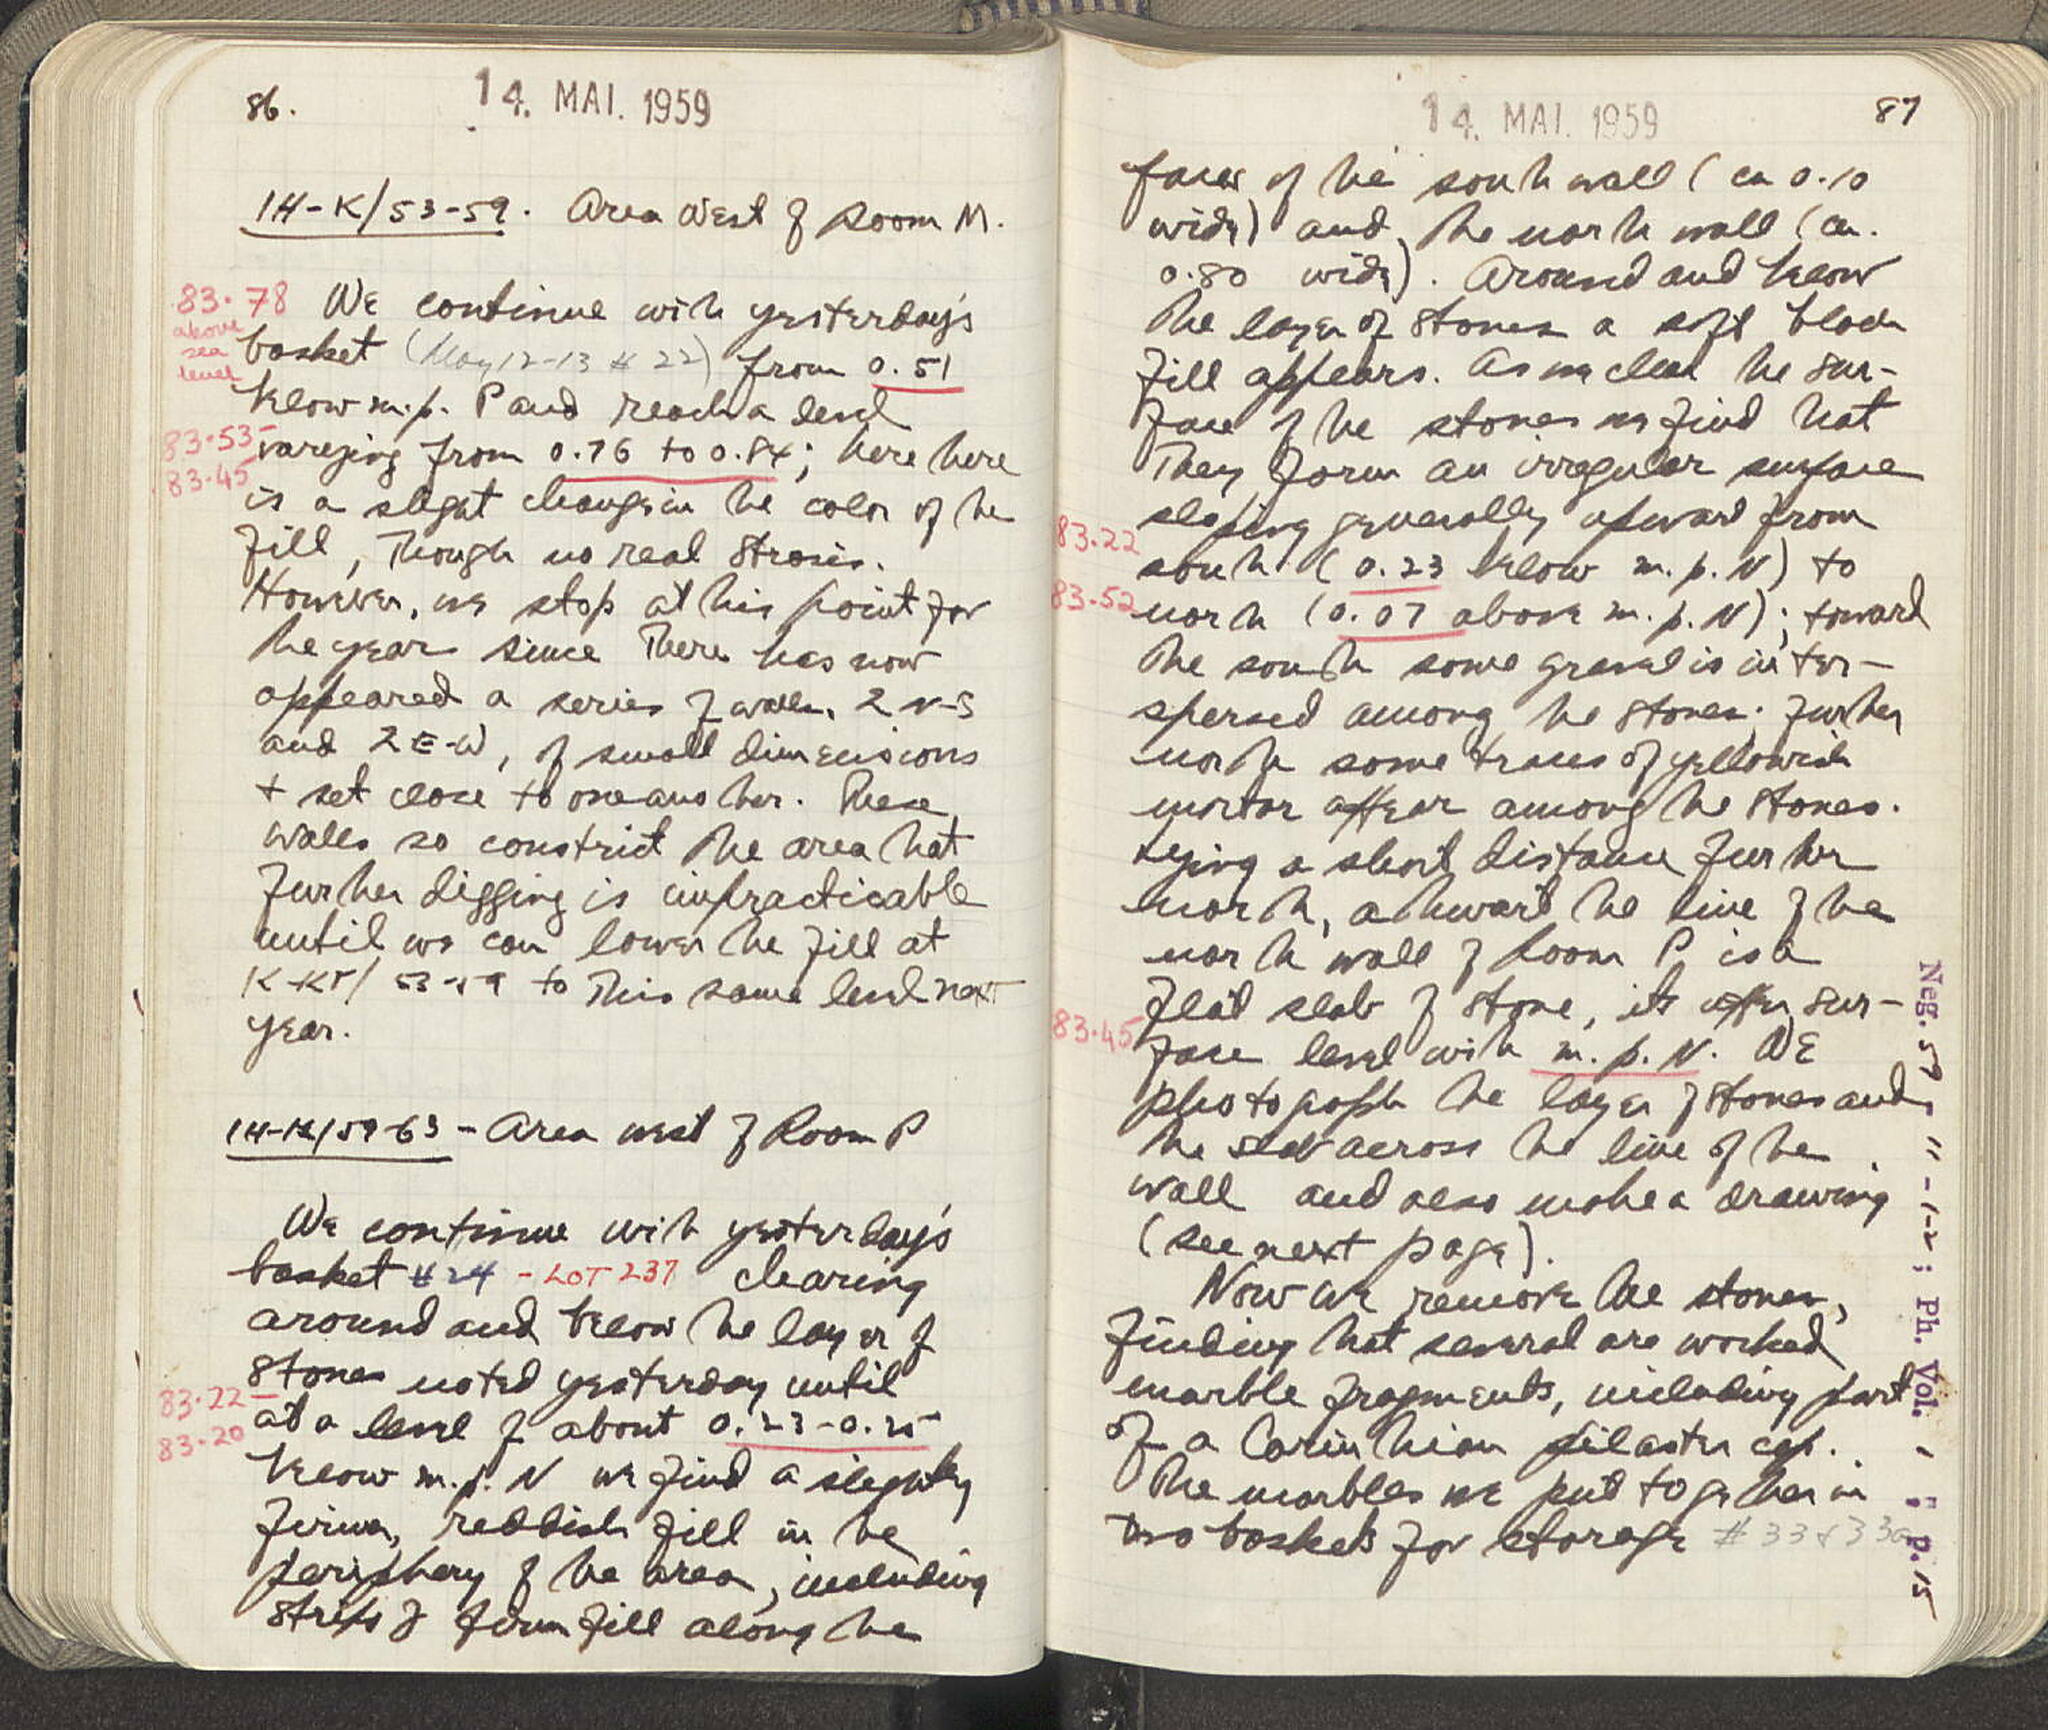 86.
14. MAI. 1959
IH-K/53-59. Area West of Room M.
83.78 We continue with yesterday's
above sea level
basket (May 12-13 # 22) from 0.51
below m.p. P and reach a level
83.53-
83.45
vareying from 0.76 to 0.84; here there
is a slight change in the color of the
fill, though no real strosis.
However, we stop at this point for
the year since there has now
appeared a series of walls, 2 N-S
and 2 E-W, of small dimensions
+ set close to one another. These
walls so constrict the area that
further digging is impracticable
until we can lower the fill at
K-KT/ 53-59 to this same level next
year.
IH-K/59-63 - Area west of Room P
We continue with yesterday's
basket # 24 - LOT 237 clearing
around and below the layer of
stones noted yesterday until
83.22-
83.20
at a level of about 0.23-0.25
below m.p. N we find a slightly
firmer, reddish fill in the
periphery of the area, including
strips of firm fill along the
87
14. MAI. 1959
faces of the south wall (ca 0.10
wide) and the north wall (ca.
0.80 wide). Around and below
the layer of stones a soft black
fill appears. As we clear the sur-
face of the stones we find that
they form an irregular surface
sloping generally upward from
83.22
south (0.23 below m.p. N) to
83.52
north (0.07 above m.p. N); toward
the south some gravel is inter-
spersed among the stones; further
north some traces of yellowish
mortar appear among the stones.
Lying a short distance further
north, athwart the line of the
north wall of Room P is a
flat slab of stone, its upper sur-
83.45
face level with m.p. N. We
photograph the layer of stones and
the slab across the line of the
wall and also make a drawing
(see next page).
Now we remove the stones,
finding that several are worked
marble fragments, including part
of a Corinthian pilaster cap.
The marbles we put together in
two baskets for storage # 33 & 33a
Neg. 59 - " - 1-2; Ph. Vol. , ; p. 15